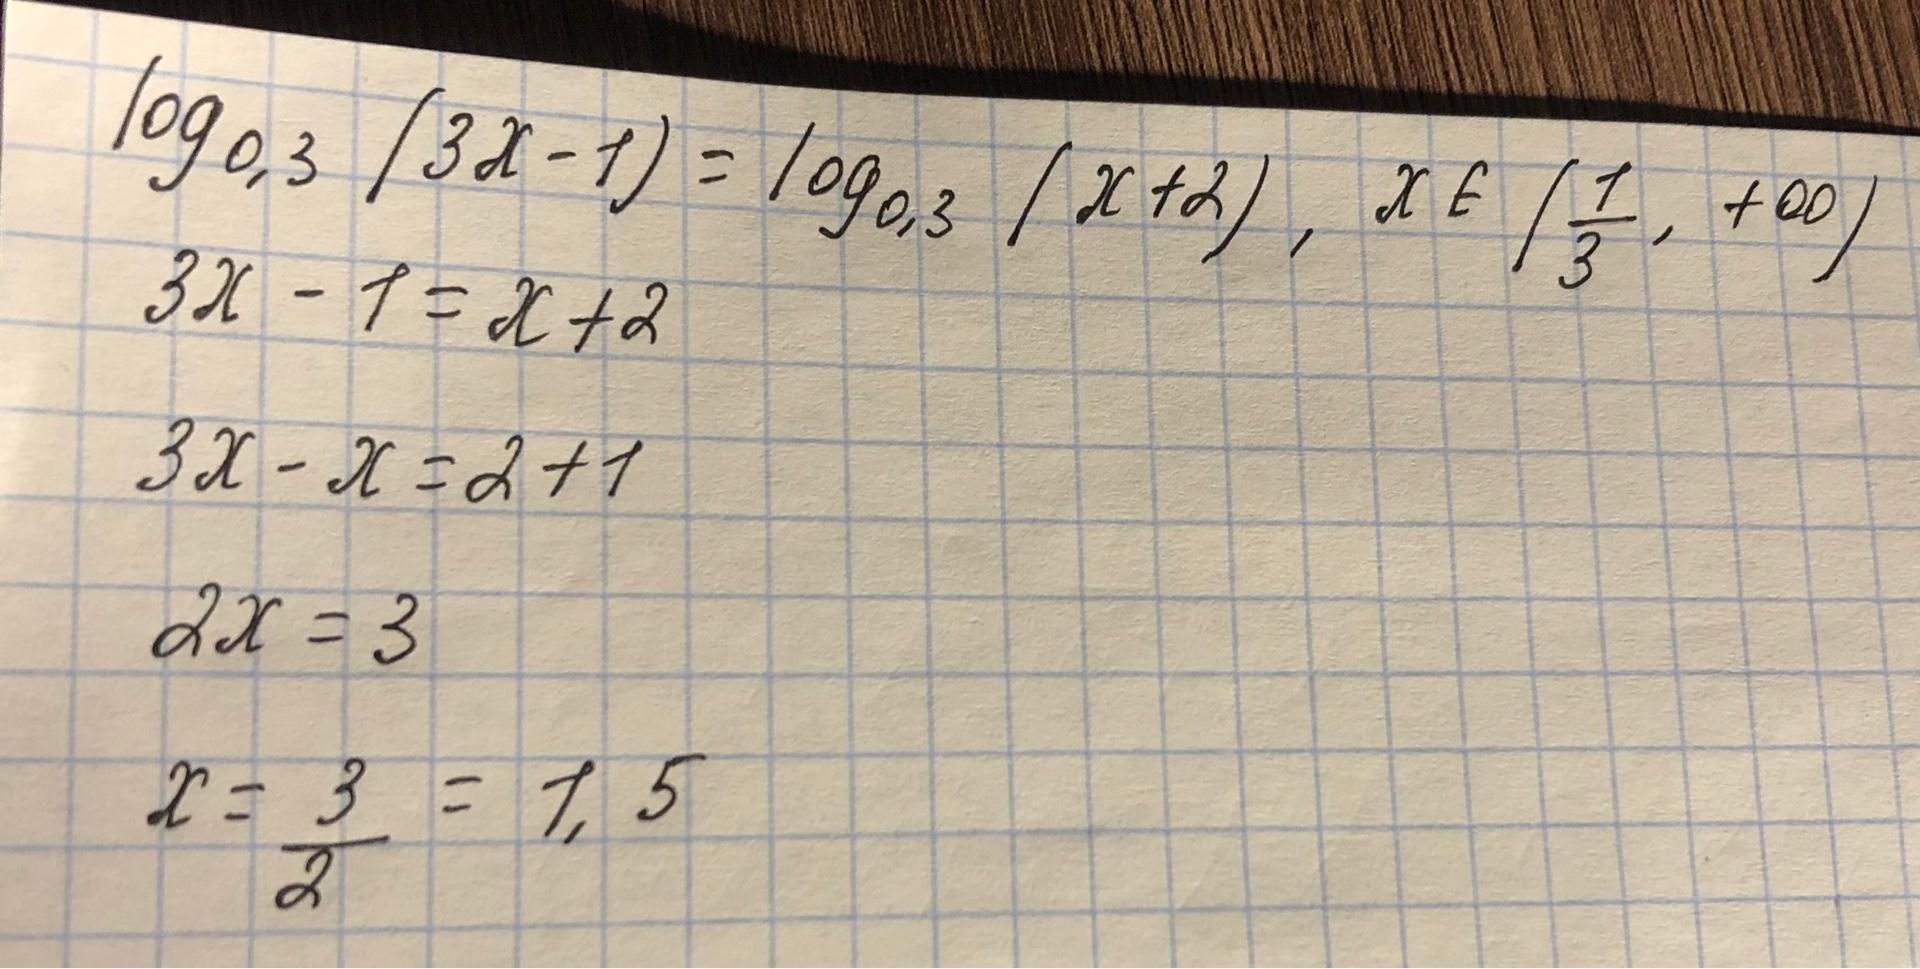 log₀,₃ (3x - 1) = log₀,₃ (x + 2), x ∈ (1/3, +∞)
3x - 1 = x + 2
3x - x = 2 + 1
2x = 3
x = 3/2 = 1,5